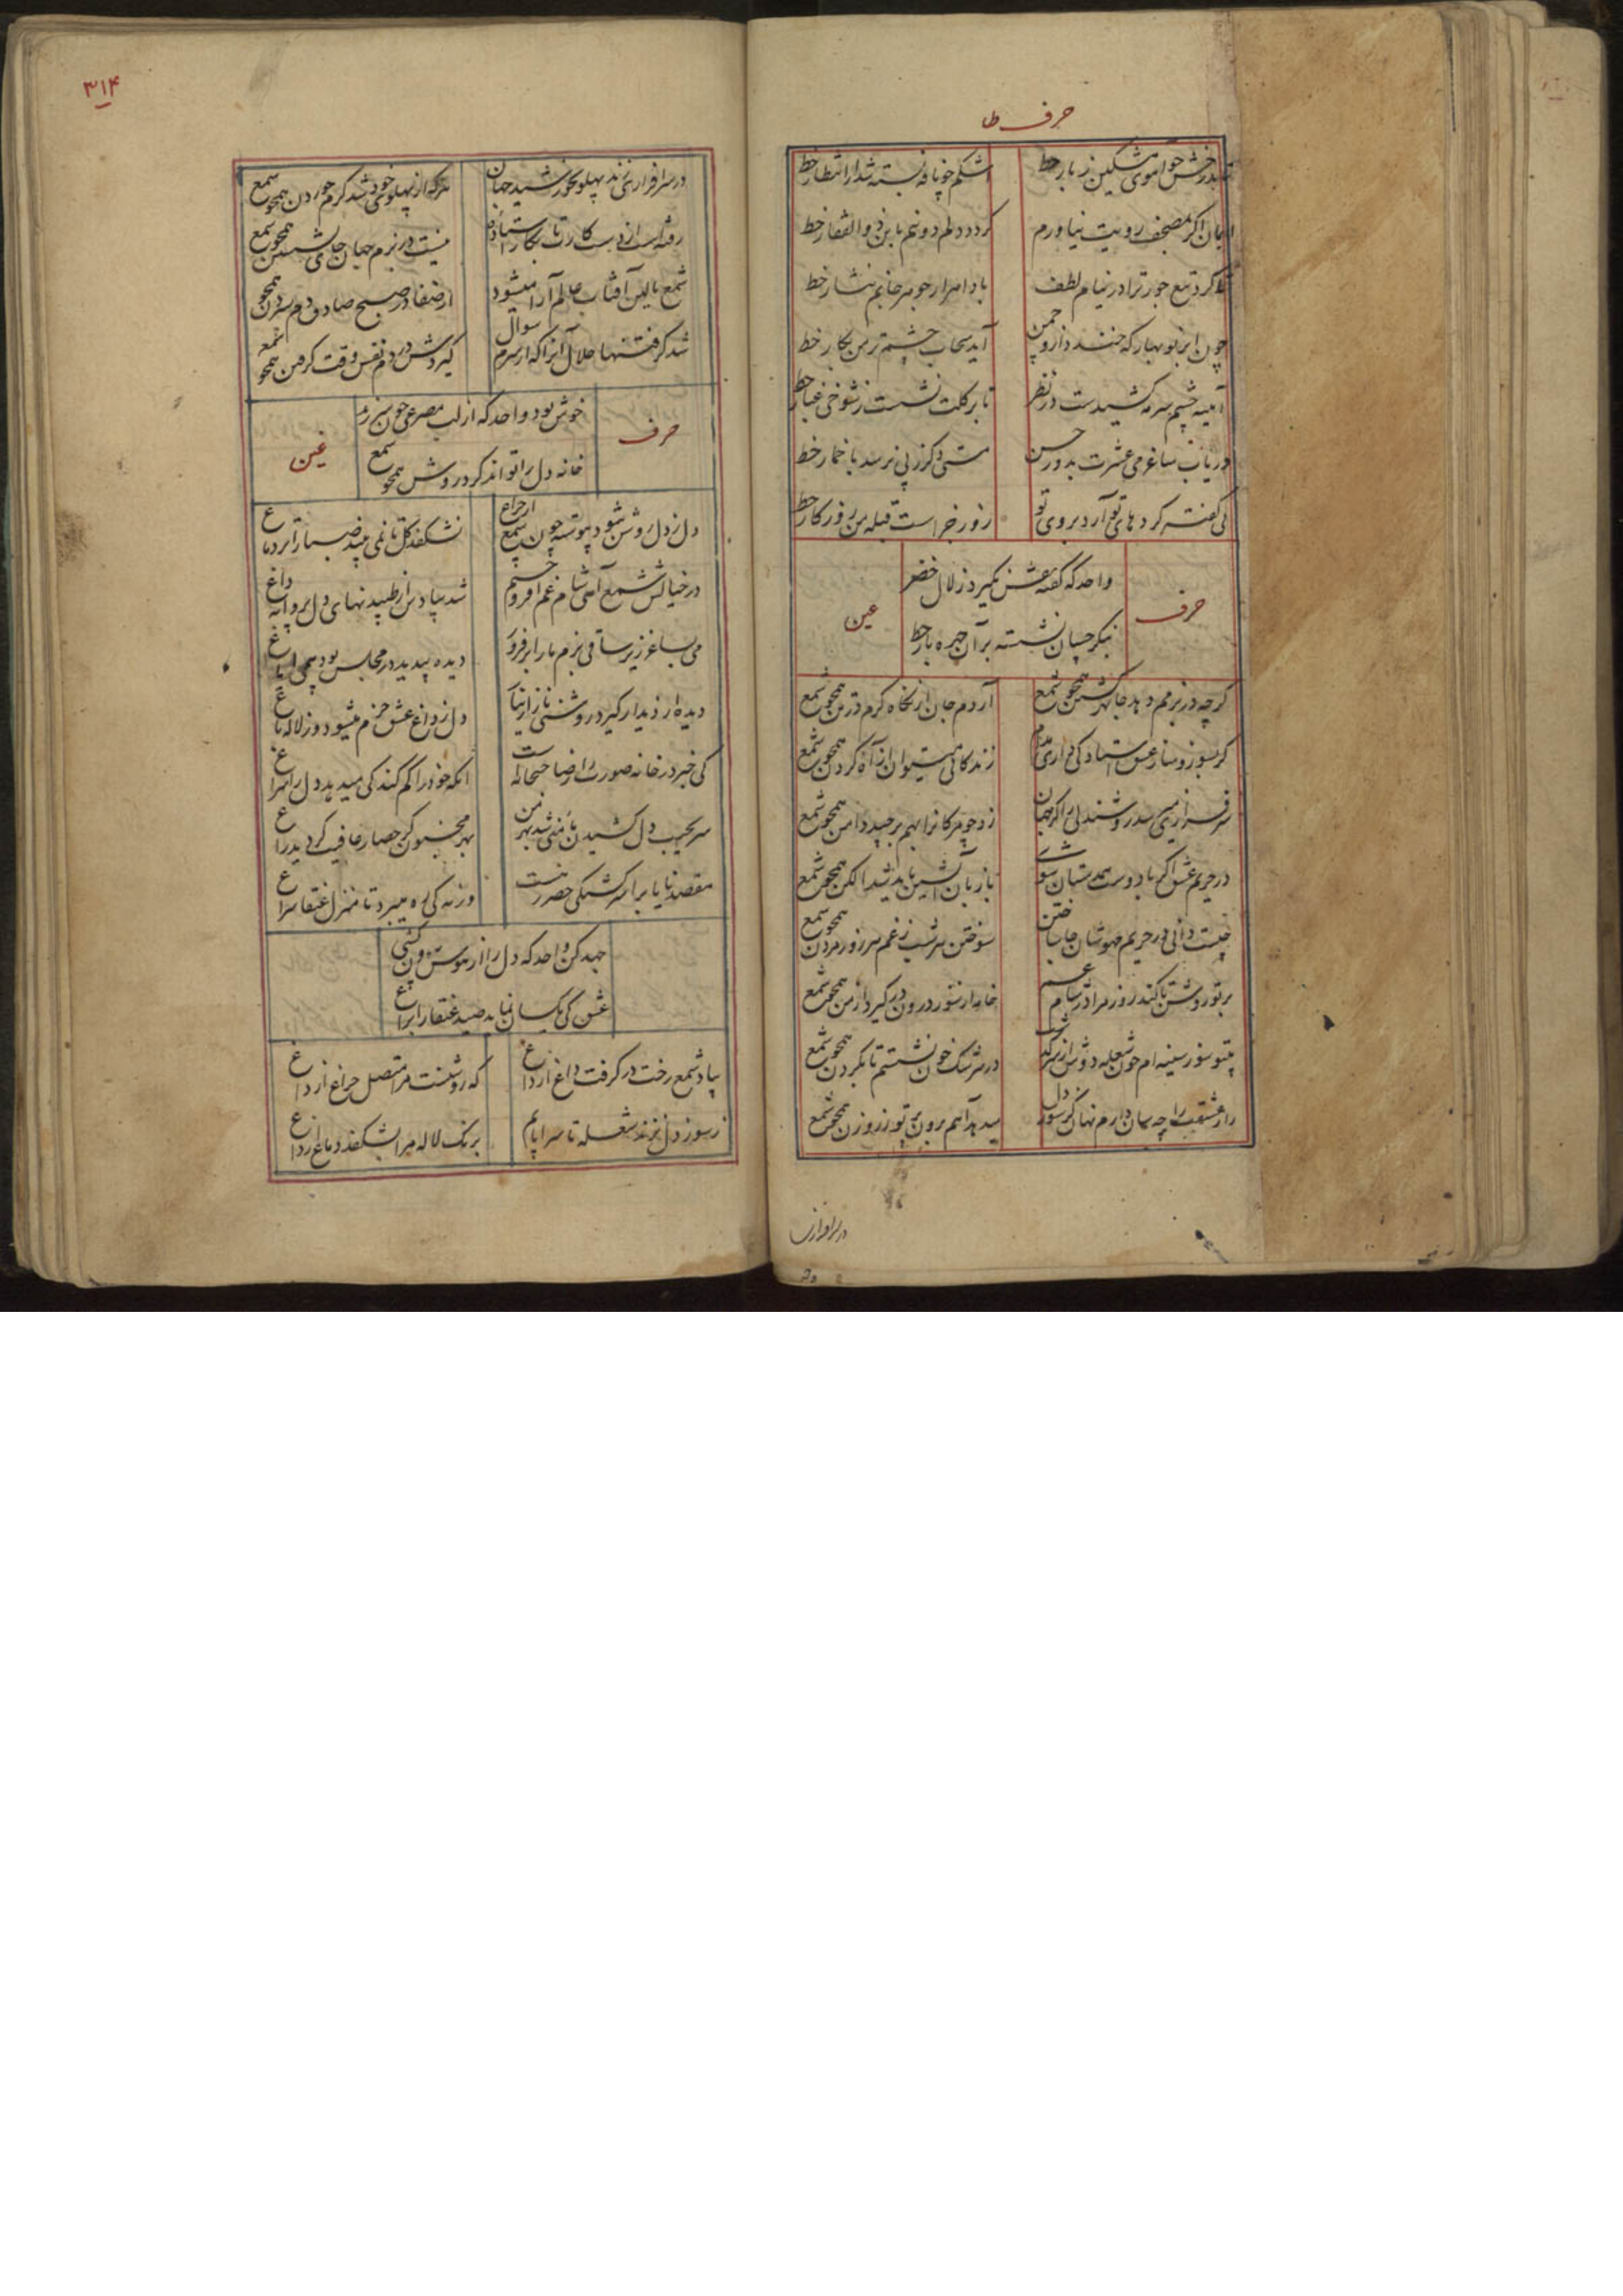 حرف طا
خطش چو آهوی مشکین ز بار خط
اشکم چو نافه بسته شد از انتظار خط
اگر مصحف رویت نیاورم
گردد دلم دو نیم باین ذوالفقار خط
کرد تیغ جور ترا در نیام لطف
بادا هزار جوهر جانم نثار خط
چون ابر نوبهار که خندد ازو چمن
آید سحاب چشم تر من بکار خط
آیینه چشم سرمه کشیدست در نظر
تا بر گلت نشست ز شوخی غبار خط
دریاب ساغر می عشرت بدور حسن
مستی دگر ز پی نرسد با خمار خط
روی تو
روز خم است قبله من روزگار خط
حرف
واحد که گفته نمیرد زلال خضر
بنگر چسان نشسته بر آن چهره بار خط
عین
گرچه در بزمم دهد جا بهر کشتن همچو شمع
آردم جان از نگاه گرم در تن همچو شمع
گر بسوز و ساز عشق استادگی داری مدام
زندگانی میتوان از آه کردن همچو شمع
سرفرازی میرسد روشندلی را کز جهان
زود چو مژگان را بهم برچید دامن همچو شمع
در حریم عشق اگر با دوست همدستان شوی
با زبان آتشین باید شد الکن همچو شمع
چیست دانی در حریم مهوشان جان باختن
سوختن هر شب ز غم هر روز مردن همچو شمع
پرتو رویش تا کند روز مرا در شام غم
خانه از شور درون در گیرد از من همچو شمع
بیتو سوز سینه ام چون شعله دوش از سر گذشت
در سرشک خون نشستم تا بگردن همچو شمع
راز عشقت را چسان دارم نهان کز سوز دل
میدهد آهم برون پرتو ز روزن همچو شمع
در سرافرازی
۳۱۴
در سرافرازی زند پهلو بخورشید جهان
هر که از پهلوی خود شد گرم خوردن همچو شمع
رفته است از دست کارت تا بکار استاده
نیست در بزم جهان جای نشستن همچو شمع
شمع بالین آفتاب عالم آرا میشود
از صفا در صبح صادق دم سردن همچو
شد گرفتنها حلال آنرا که از سرم سوال
گیردش در دم نفس وقت گرفتن همچو شمع
حرف
خوش بود واحد که از لب مصرعی چون سر زد
خانه دل را تواند کرد روشن همچو شمع
غین
دل ز دل روشن شود پیوسته چون شمع از چراغ
نشکفد گل تا نمی بیند ضیا را بر دماغ
در خیالش شمع آهی شام غم افروختم
شد بیادش از طپیدنهای دل پروانه داغ
می بساغر ریز ساقی بزم ما را برفروز
دیده بیدید در مجلس بود بی می ایاغ
دیده از دیدار گیرد روشنی ناز از نیاز
دل ز داغ عشق خرم میشود وز لاله باغ
کی خبر در خانه صورت را ز صاحبخانه است
آنکه خود را گم کند کی میدهد دل را سراغ
سر بجیب دل کشیدن مأمنی شد بهر من
بهر مجنون گر حصار عافیت گردید راغ
مقصد نایاب را سرگشتگی خضر رهست
ورنه کی ره میبرد تا منزل عنقا سراغ
جهد کن واحد که دل را از هوس بیرون کنی
عشق کی یکسان نماید صید عنقا را براغ
بیاد شمع رخت در گرفت داغ از داغ
که روشنست مرا متصل چراغ از داغ
ز سوز دل بزند شعله تا سراپایم
برنگ لاله مرا بشکفد دماغ از داغ